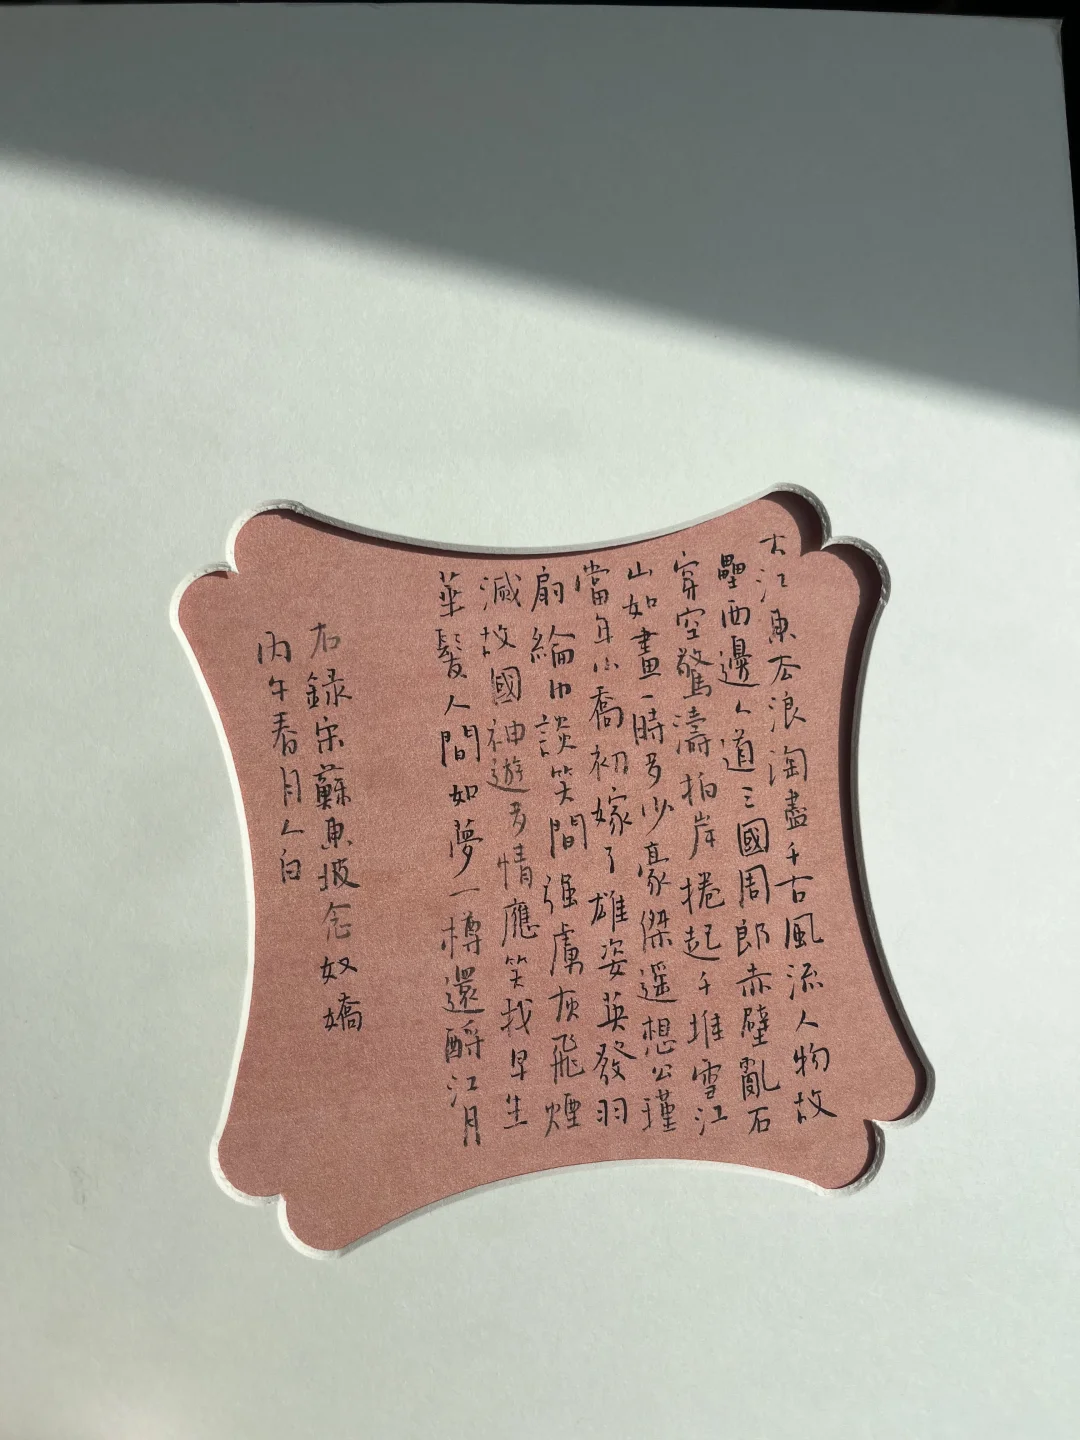 大江東去浪淘盡千古風流人物故
壘西邊人道三國周郎赤壁亂石
穿空驚濤拍岸捲起千堆雪江
山如畫一時多少豪傑遥想公瑾
當年小喬初嫁了雄姿英發羽
扇綸巾談笑間强虜灰飛煙
滅故國神遊多情應笑我早生
華髮人間如夢一樽還酹江月
右録宋蘇東坡念奴嬌
丙午春月人白